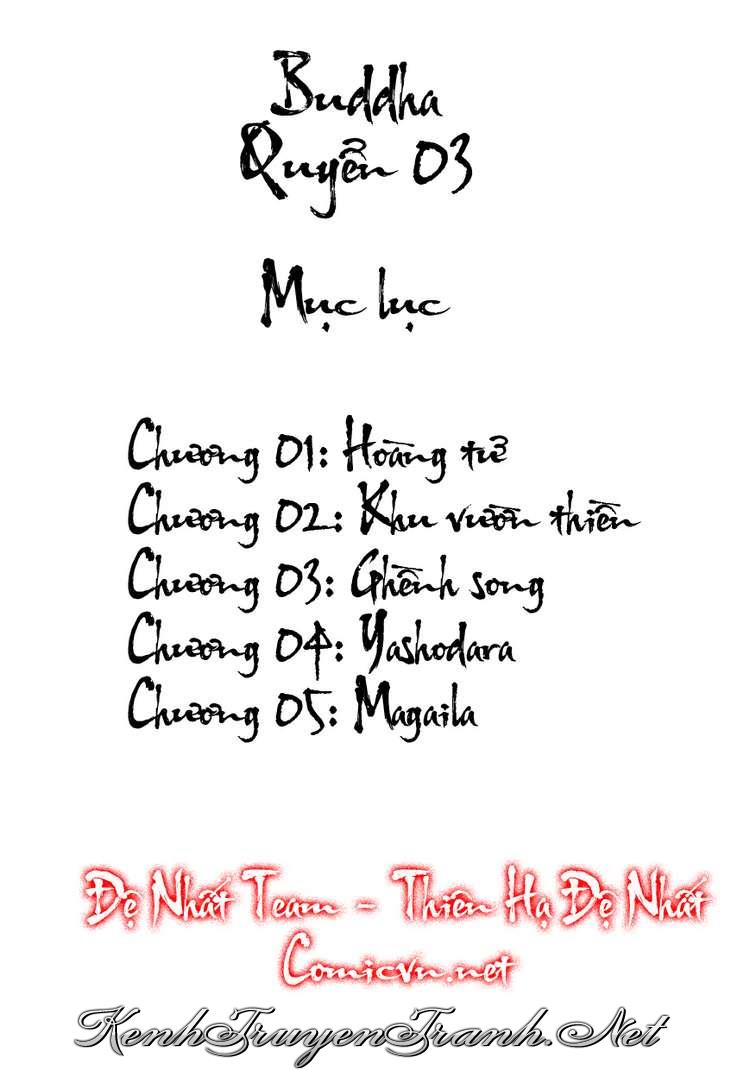 Buddha
Quyển 03
Mục lục
Chương 01: Hoàng tử
Chương 02: Khu vườn thiền
Chương 03: Ghềnh song
Chương 04: Yashodara
Chương 05: Magaila
Đệ Nhất Team - Thiên Hạ Đệ Nhất
Comicvn.net
KenhTruyenTranh.Net